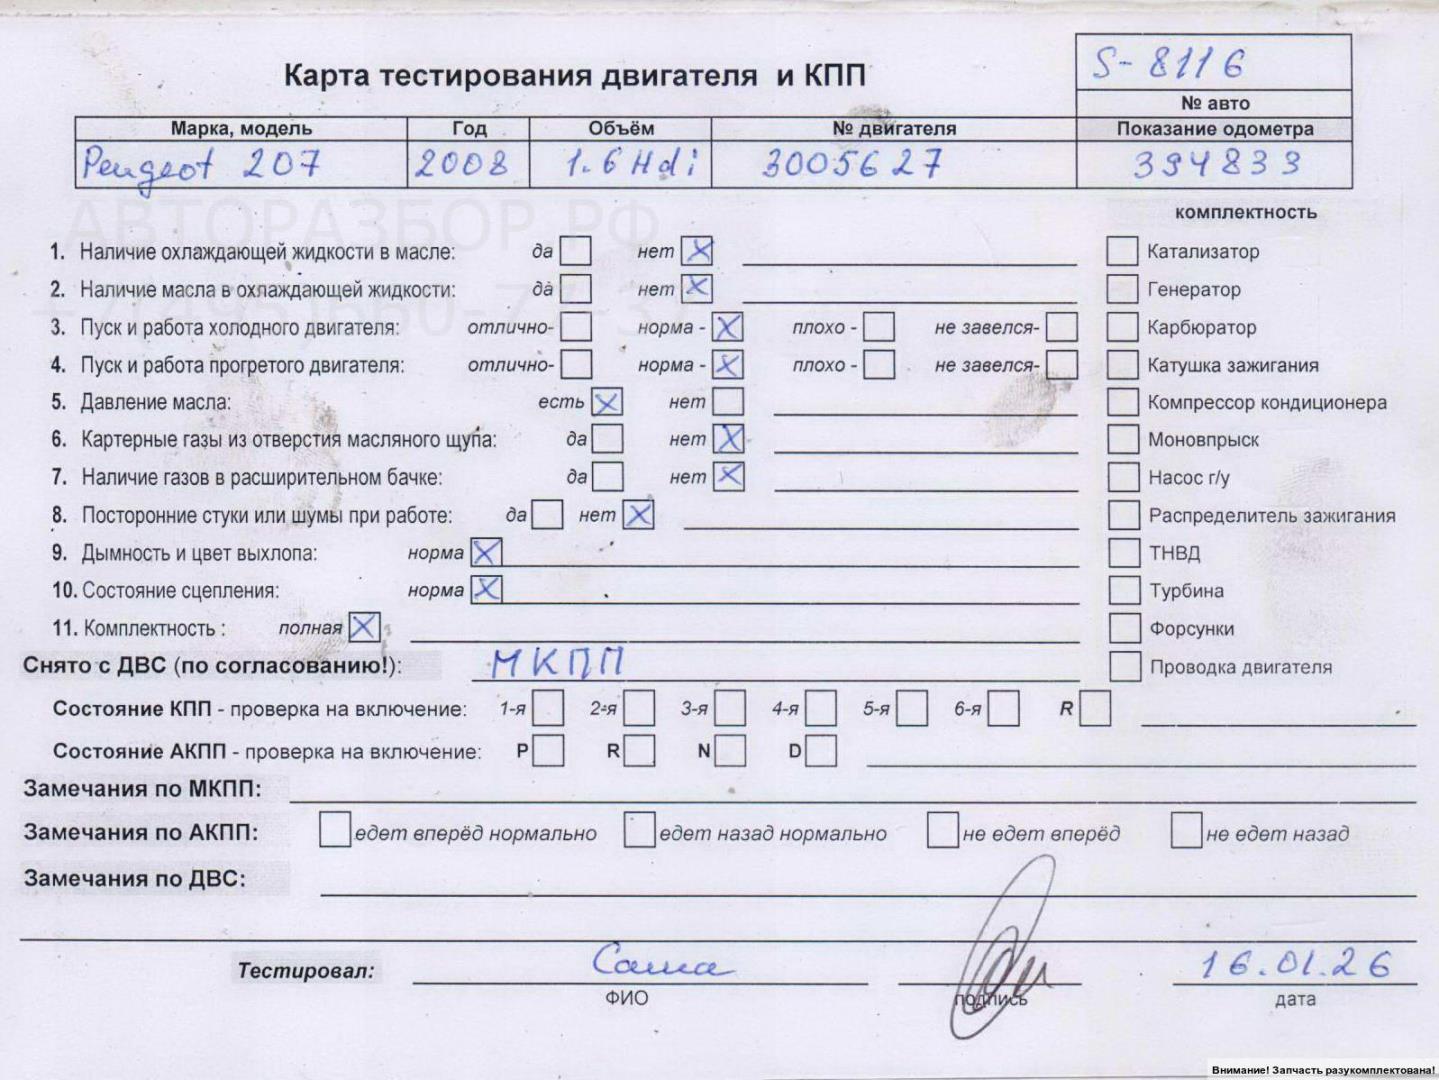 S-8116
Карта тестирования двигателя и КПП
№ авто
Марка, модель Год Объём № двигателя Показание одометра
Peugeot 207 2008 1.6 Hdi 3005627 394833
АВТОРАЗБОР.РФ
комплектность
1. Наличие охлаждающей жидкости в масле: да нет Катализатор
2. Наличие масла в охлаждающей жидкости: да нет Генератор
3. Пуск и работа холодного двигателя: отлично- норма - плохо - не завелся- Карбюратор
4. Пуск и работа прогретого двигателя: отлично- норма - плохо - не завелся- Катушка зажигания
5. Давление масла: есть нет Компрессор кондиционера
6. Картерные газы из отверстия масляного щупа: да нет Моновпрыск
7. Наличие газов в расширительном бачке: да нет Насос г/у
8. Посторонние стуки или шумы при работе: да нет Распределитель зажигания
9. Дымность и цвет выхлопа: норма ТНВД
10. Состояние сцепления: норма Турбина
11. Комплектность : полная Форсунки
Снято с ДВС (по согласованию!): МКПП Проводка двигателя
Состояние КПП - проверка на включение: 1-я 2-я 3-я 4-я 5-я 6-я R
Состояние АКПП - проверка на включение: P R N D
Замечания по МКПП:
Замечания по АКПП: едет вперёд нормально едет назад нормально не едет вперёд не едет назад
Замечания по ДВС:
Тестировал: Саша 16.01.26
ФИО подпись дата
Внимание! Запчасть разукомплектована!